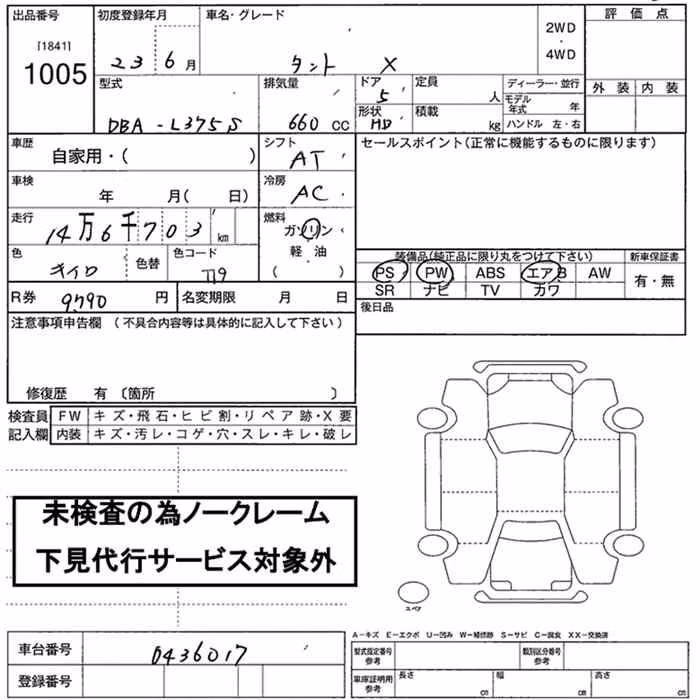 出品番号 初度登録年月 車名・グレード 評価点
[1841] 1005 23 6月 タント X 2WD・4WD 外装 内装
型式 排気量 ドア 定員 ディーラー・並行
DBA-L375S 660CC 5 人 モデル年式 年
形状 積載 ハンドル 左・右
HD kg
車歴 シフト セールスポイント(正常に機能するものに限ります)
自家用・( ) AT
車検 冷房
年 月( 日) AC
走行 燃料
14万6千703km ガソリン
軽油
( )
色 色替 色コード 装備品(純正品に限り丸をつけて下さい) 新車保証書
キイロ PS PW ABS エアB AW 有・無
SR ナビ TV カワ
R券 9790円 名変期限 月 日 後日品
注意事項申告欄(不具合内容等は具体的に記入して下さい)
修復歴 有 〔箇所 〕
検査員 FW キズ・飛石・ヒビ割・リペア跡・X要
記入欄 内装 キズ・汚レ・コゲ・穴・スレ・キレ・破レ
未検査の為ノークレーム
下見代行サービス対象外
スペア
A-キズ E-エクボ U-凹み W-補修跡 S-サビ C-腐食 XX-交換済
車台番号 0436017 型式指定番号 参考 類別区分番号 参考
登録番号 車庫証明用 参考 長さ cm 幅 cm 高さ cm